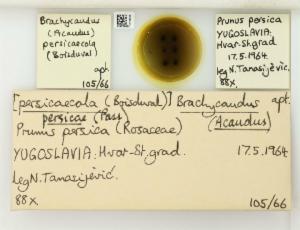 Brachycaudus
(Acaudus)
persicaecola
(Boisduval)
apt.
105/66
Prunus persica
YUGOSLAVIA:
Hvar-St.grad
17.5.1964
leg N. Tanasijević.
88x.
[persicaecola (Boisduval)] Brachycaudus apt.
persicae (Pass) (Acaudus)
Prunus persica (Rosaceae)
YUGOSLAVIA: Hvar-St.grad. 17.5.1964
leg N. Tanasijević.
88x. 105/66